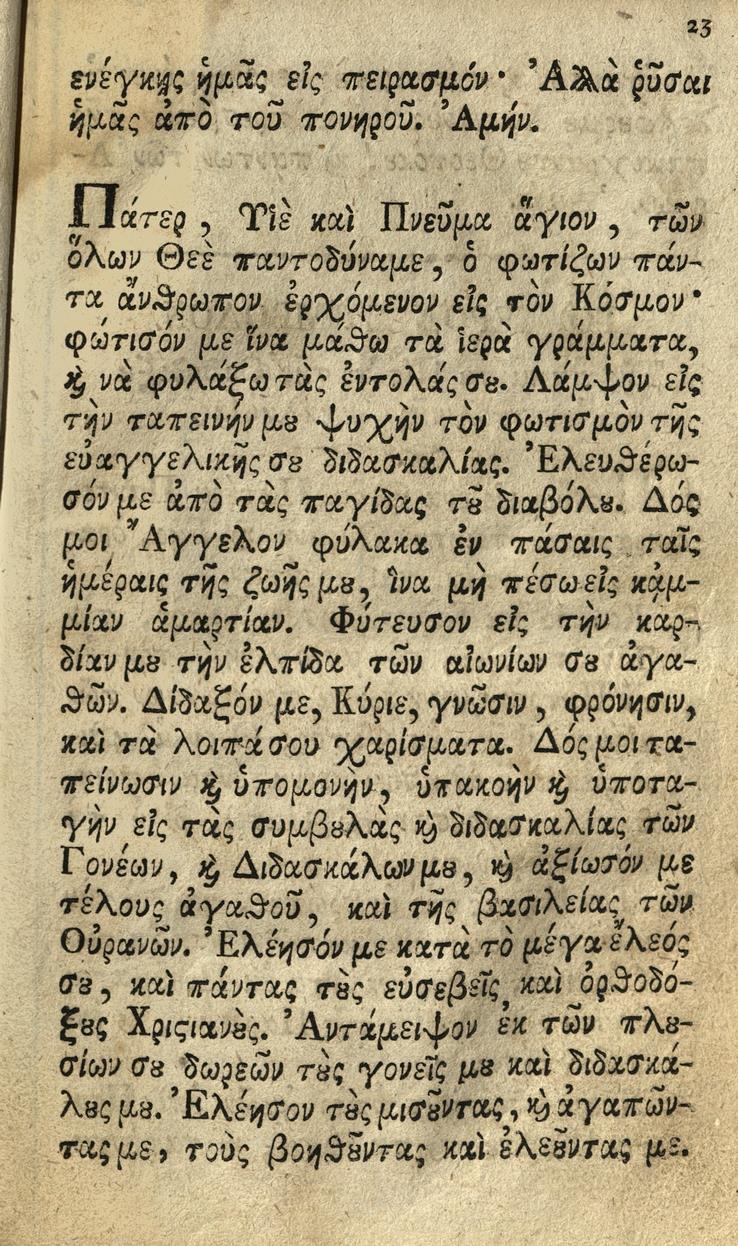 23
ενέγκῃς ἡμᾶς εἰς πειρασμόν· Ἀλλὰ ῥῦσαι
ἡμᾶς ἀπὸ τοῦ πονηροῦ. Ἀμήν.
Πάτερ, Υἱὲ καὶ Πνεῦμα ἅγιον, τῶν
ὅλων Θεὲ παντοδύναμε, ὁ φωτίζων πάν-
τα ἄνθρωπον ἐρχόμενον εἰς τὸν Κόσμον·
φώτισόν με ἵνα μάθω τὰ ἱερὰ γράμματα,
ϗ νὰ φυλάξω τὰς ἐντολάς σȣ. Λάμψον εἰς
τὴν ταπεινήν μȣ ψυχὴν τὸν φωτισμὸν τῆς
εὐαγγελικῆς σȣ διδασκαλίας. Ἐλευθέρω-
σόν με ἀπὸ τὰς παγίδας τȣ͂ διαβόλȣ. Δός
μοι Ἄγγελον φύλακα ἐν πάσαις ταῖς
ἡμέραις τῆς ζωῆς μȣ, ἵνα μὴ πέσω εἰς κᾀμ-
μίαν ἁμαρτίαν. Φύτευσον εἰς τὴν καρ-
δίαν μȣ τὴν ἐλπίδα τῶν αἰωνίων σȣ ἀγα-
θῶν. Δίδαξόν με, Κύριε, γνῶσιν, φρόνησιν,
καὶ τὰ λοιπά σου χαρίσματα. Δός μοι τα-
πείνωσιν ϗ ὑπομονὴν, ὑπακοὴν ϗ ὑποτα-
γὴν εἰς τὰς συμβȣλὰς ϗ διδασκαλίας τῶν
Γονέων, ϗ Διδασκάλων μȣ, ϗ ἀξίωσόν με
τέλους ἀγαθοῦ, καὶ τῆς βασιλείας τῶν
Οὐρανῶν. Ἐλέησόν με κατὰ τὸ μέγα ἔλεός
σȣ, καὶ πάντας τȣς εὐσεβεῖς καὶ ὀρθοδό-
ξȣς Χριϛιανȣ̀ς. Ἀντάμειψον ἐκ τῶν πλȣ-
σίων σȣ δωρεῶν τȣς γονεῖς μȣ καὶ διδασκά-
λȣς μȣ. Ἐλέησον τȣ̀ς μισȣ͂ντας, ϗ ἀγαπῶν-
τας με, τοὺς βοηθȣ͂ντας καὶ ἐλεȣ͂ντας με.